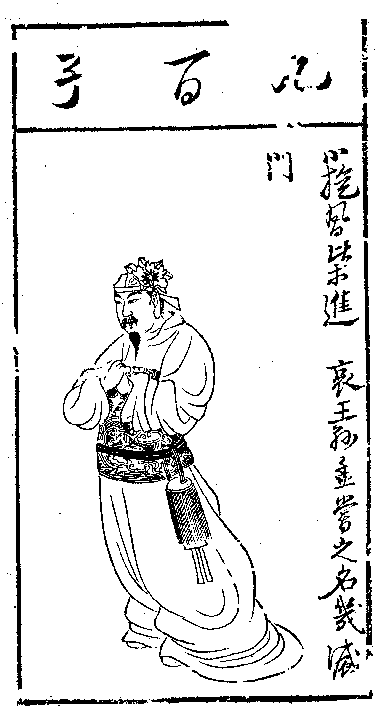 百子
小旋風柴進 哀王孫孟嘗之名幾滅
門